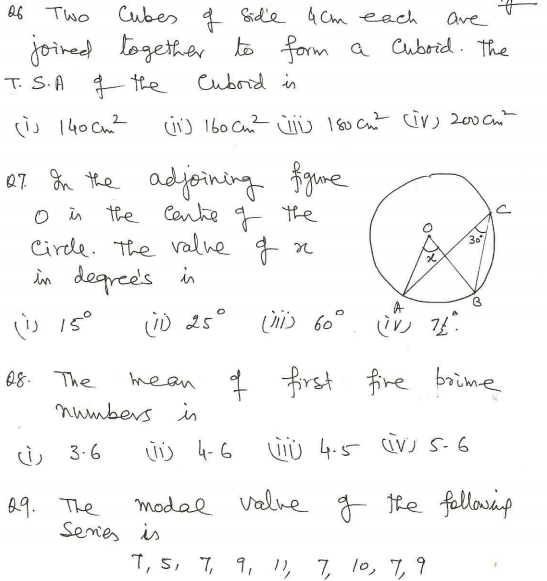 Q6 Two Cubes of Side 4cm each are
joined together to form a Cuboid. The
T.S.A of the Cuboid is
(i) 140cm² (ii) 160cm² (iii) 180cm² (iv) 200cm²
Q7. In the adjoining figure
O is the Centre of the
Circle. The value of x
in degree's is
C
O
30°
x
A
B
(i) 15° (ii) 25° (iii) 60° (iv) 7½°.
Q8. The mean of first five prime
numbers is
(i) 3.6 (ii) 4.6 (iii) 4.5 (iv) 5.6
Q9. The modal value of the following
Series is
7, 5, 7, 9, 11, 7, 10, 7, 9